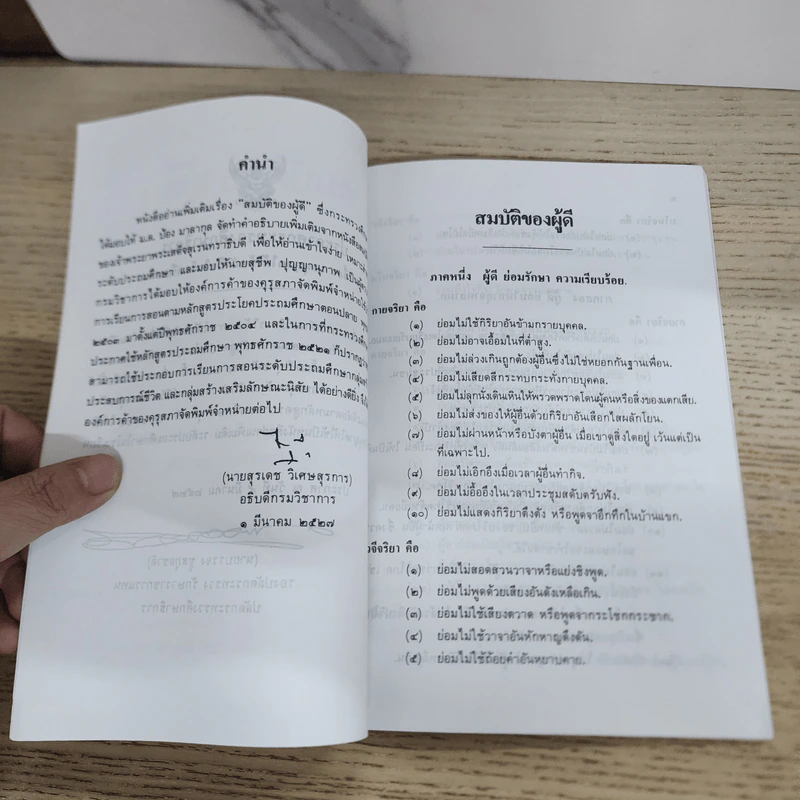 คำนำ
หนังสืออ่านเพิ่มเติมเรื่อง "สมบัติของผู้ดี" ซึ่งกระทรวง
ได้มอบให้ ม.ล. ป้อง มาลากุล จัดทำคำอธิบายเพิ่มเติมจากหนังสือ
ของเจ้าพระยาพระเสด็จสุเรนทราธิบดี เพื่อให้อ่านเข้าใจง่าย
ระดับประถมศึกษา และมอบให้นายสุชีพ ปุญญานุภาพ
กรมวิชาการได้มอบให้องค์การค้าของคุรุสภาจัดพิมพ์จำหน่าย
การเรียนการสอนตามหลักสูตรประโยคประถมศึกษาตอนปลาย
๒๕๐๓ มาตั้งแต่ปีพุทธศักราช ๒๕๐๔ และในการที่กระทรวง
ประกาศใช้หลักสูตรประถมศึกษา พุทธศักราช ๒๕๒๑ ก็ปรากฏ
สามารถใช้ประกอบการเรียนการสอนระดับประถมศึกษากลุ่ม
ประสบการณ์ชีวิต และกลุ่มสร้างเสริมลักษณะนิสัย ได้อย่างดียิ่ง
องค์การค้าของคุรุสภาจัดพิมพ์จำหน่ายต่อไป
(นายสุรเดช วิเศษสุรการ)
อธิบดีกรมวิชาการ
๑ มีนาคม ๒๕๒๗
สมบัติของผู้ดี
ภาคหนึ่ง ผู้ดี ย่อมรักษา ความเรียบร้อย.
กายจริยา คือ
(๑) ย่อมไม่ใช้กิริยาอันข้ามกรายบุคคล.
(๒) ย่อมไม่อาจเอื้อมในที่ต่ำสูง.
(๓) ย่อมไม่ล่วงเกินถูกต้องผู้อื่นซึ่งไม่ใช่หยอกกันฐานเพื่อน.
(๔) ย่อมไม่เสียดสีกระทบกระทั่งกายบุคคล.
(๕) ย่อมไม่ลุกนั่งเดินเหินให้พรวดพราดโดนผู้คนหรือสิ่งของแตกเสีย.
(๖) ย่อมไม่ส่งของให้ผู้อื่นด้วยกิริยาอันเสือกไสผลักโยน.
(๗) ย่อมไม่ผ่านหน้าหรือบังตาผู้อื่น เมื่อเขาดูสิ่งใดอยู่ เว้นแต่เป็น
ที่เฉพาะไป.
(๘) ย่อมไม่เอิกอึงเมื่อเวลาผู้อื่นทำกิจ.
(๙) ย่อมไม่อื้ออึงในเวลาประชุมสดับตรับฟัง.
(๑๐) ย่อมไม่แสดงกิริยาตึงตัง หรือพูดจาอึกทึกในบ้านแขก.
วจีจริยา คือ
(๑) ย่อมไม่สอดสวนวาจาหรือแย่งชิงพูด.
(๒) ย่อมไม่พูดด้วยเสียงอันดังเหลือเกิน.
(๓) ย่อมไม่ใช้เสียงตวาด หรือพูดจากระโชกกระชาก.
(๔) ย่อมไม่ใช้วาจาอันหักหาญดึงดัน.
(๕) ย่อมไม่ใช้ถ้อยคำอันหยาบคาย.